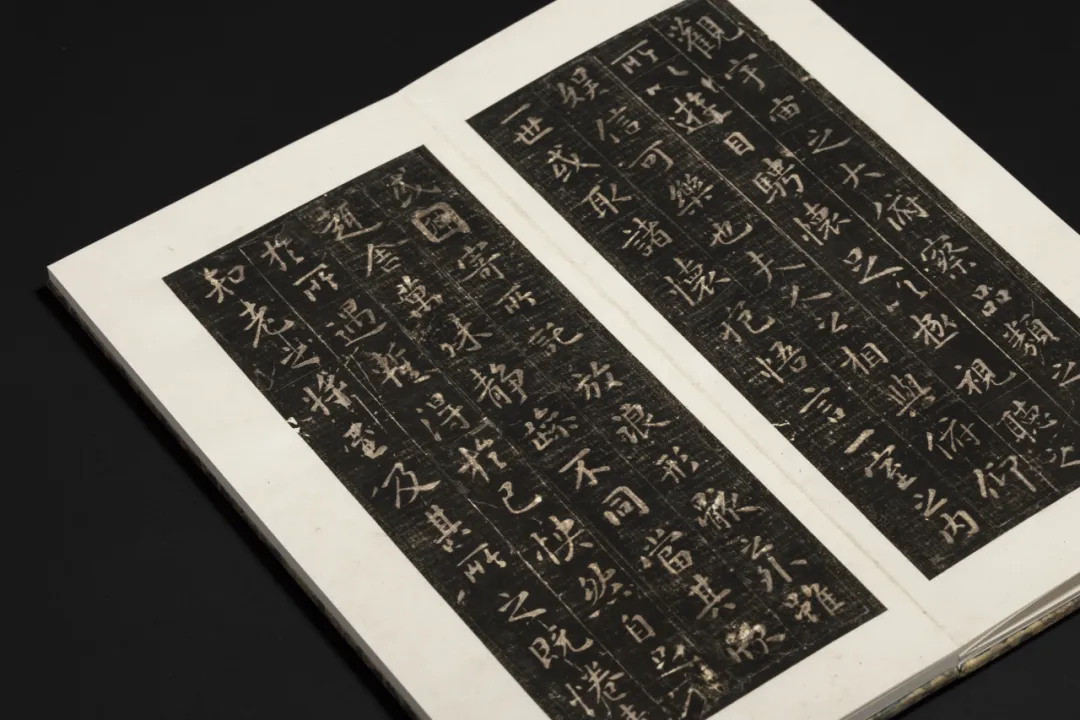 觀宇宙之大俯察品類之
所以遊目騁懷足以極視聽之
娛信可樂也夫人之相與俯仰
一世或取諸懷抱悟言一室之內
或因寄所託放浪形骸之外雖
趣舍萬殊靜躁不同當其欣
於所遇暫得於己快然自足
知老之將至及其所之既惓